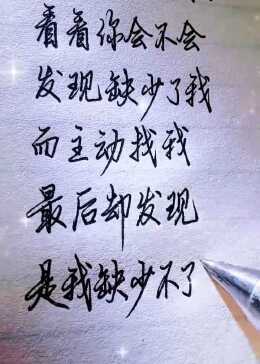 看看你会不会
发现缺少了我
而主动找我
最后却发现
是我缺少不了